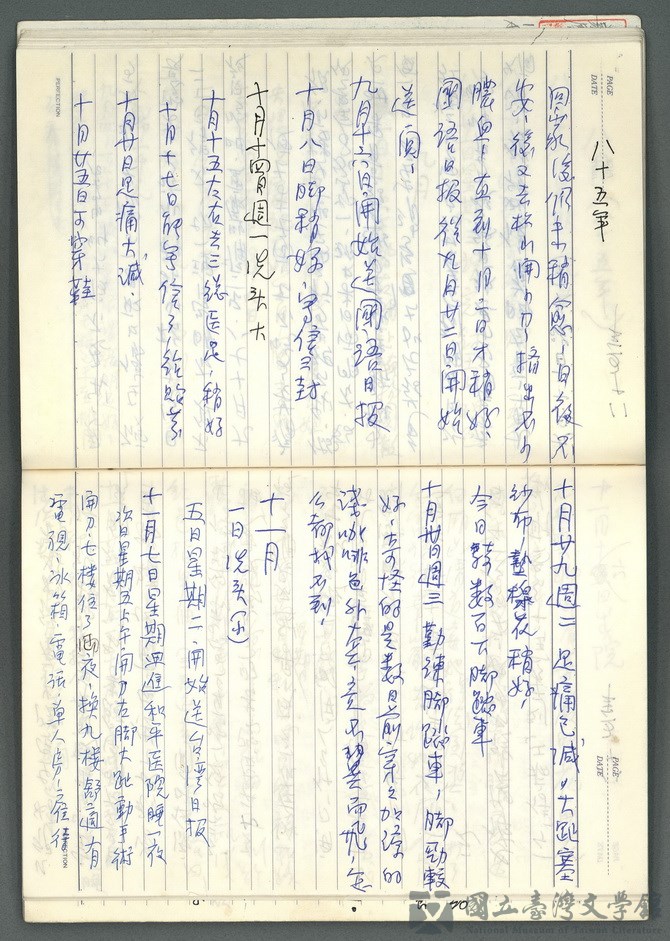 PAGE
DATE
八十五年
回家後仍未稍愈,日後不
安,後又去松山開刀,擠出不少
膿血,直到十月二日才稍好、
國語日報從九月廿二日開始
送閱,
九月廿六日開始送國語日報
十月八日脚稍好、寫信三封
十月十四日週一洗头大
十月十五大右去三總医足,稍好
十月十七日能寫信了,給貽
十月廿日足痛大減.
十月廿五日可穿鞋
PERFECTION
PAGE
DATE
十月廿九週二 足痛已減,大趾塞
紗布,墊棉花稍好,
今日騎數百下脚踏車
十月卅日週三 勤練脚踏車,脚勁較
好,奇怪的是數日前穿之加厚的
淺咖啡色外套,竟不翼而飛,怎
么都找不到,
十一月
一日洗头(小)
五日星期二、開始送台灣日報
十一月七日星期四進和平医院睡一夜
次日星期五上午開刀左脚大趾動手術
開刀,七樓住了兩夜,換九樓舒適有
電視,冰箱,電話,單人房,
PERFECTION
國立臺灣文學館
National Museum of Taiwan Literature